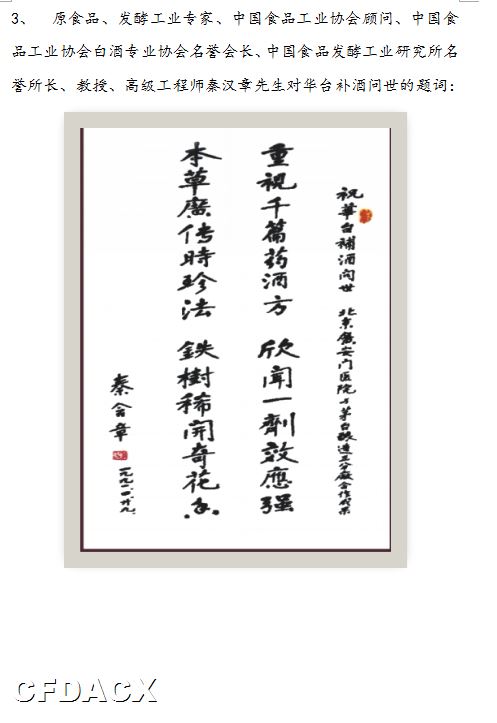 3、 原食品、发酵工业专家、中国食品工业协会顾问、中国食
品工业协会白酒专业协会名誉会长、中国食品发酵工业研究所名
誉所长、教授、高级工程师秦汉章先生对华台补酒问世的题词：
祝華台補酒问世 北京廣安门医院与茅台酿造工分廠合作成果
重視千篇药酒方 欣聞一劑效應强
本草廣传時珍法 鉄樹稀開奇花香
秦含章
一九九一.四.廿九.
CFDACX